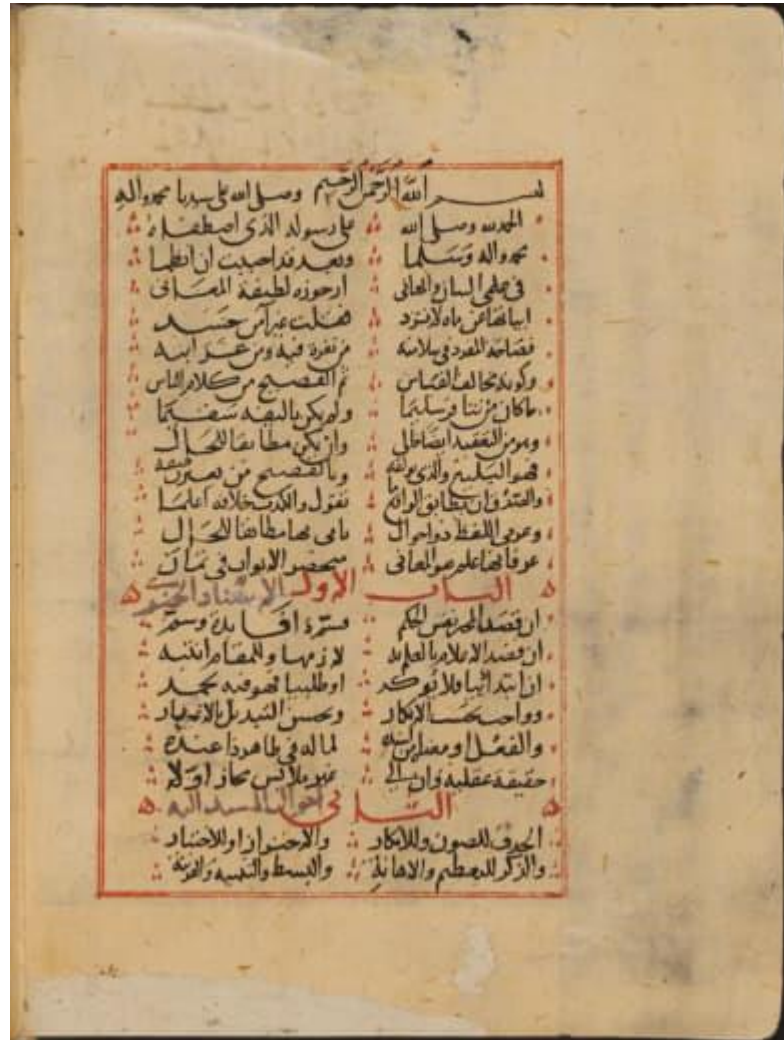 بسم الله الرحمن الرحيم وصلى الله على سيدنا محمد واله
الحمد لله وصلى الله على رسوله الذي اصطفاه
محمد واله وسلما وبعد قد احببت ان انظما
في علمي البيان والمعاني ارجوزة لطيفة المعاني
ابياتها عن مائة لا تزد فقلت غير آمن حسد
فصاحة المفرد في سلامته من نفرة فيه ومن غرابته
وكونه مخالف القياس ثم الفصيح من كلام الناس
ما كان من تنافر سليما ولم يكن تاليفه سقيما
وهو من التعقيد ايضا خالي وان يكن مطابقا للحال
فهو البليغ والذي يولفه وبالفصيح من يعبر
والصدق ان يطابق الواقع ما نقول والكذب خلافه اعلما
وعربي اللفظ ذو احوال ياتي بها مطابقا للحال
عرفانها علم هو المعاني منحصر الابواب في ثمان
الباب الاول الاسناد الخبري
ان قصد المخبر نفس الحكم فسم ذا فايدة وسم
ان قصد الاعلام بالعلم به لازمها وللمقام انتبه
ان ابتدائيا فلا يوكد او طلبيا فهو فيه يحمد
وواجب بحسب الانكار ويحسن التبديل بالاغيار
والفعل او معناه ان اسنده لما له في ظاهر ذا عنده
حقيقة عقلية وان الى غير ملابس مجاز اولا
الثاني احوال المسند اليه
الحذف للصون وللانكار والاحتراز او للاختبار
والذكر للتعظيم والاهانة والبسط والتنبيه والقرينة